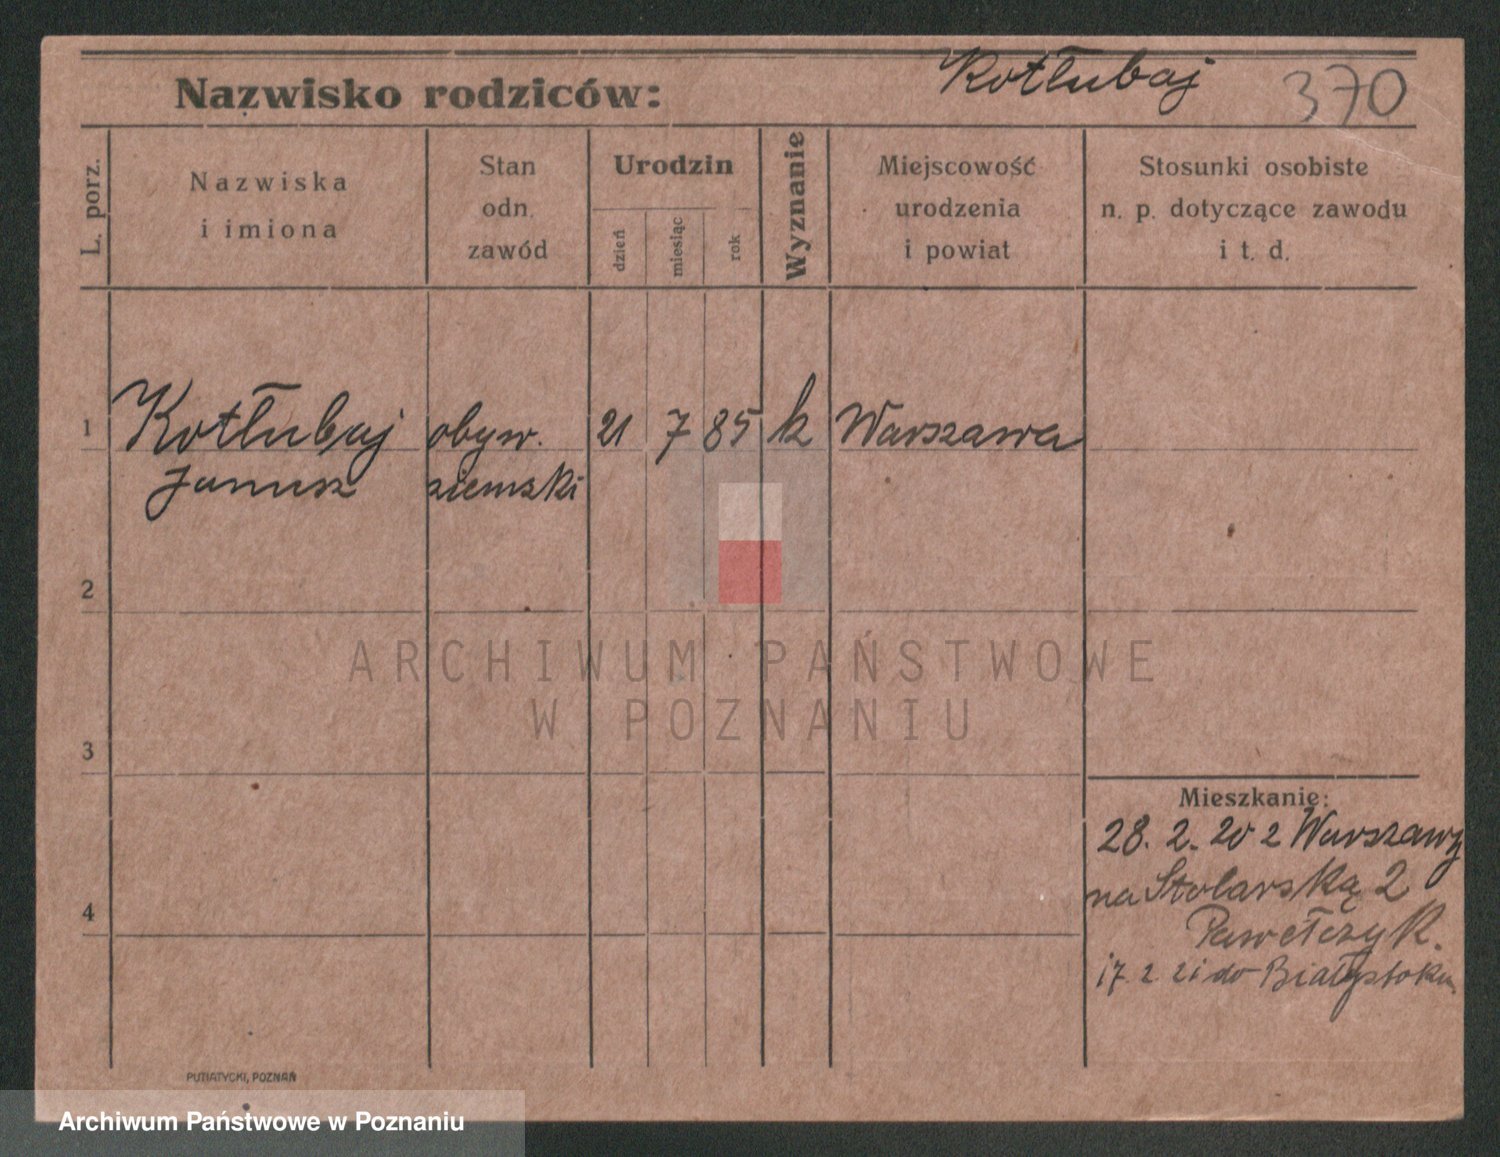 Nazwisko rodziców: Kotłubaj 370
L. porz.
Nazwiska
i imiona
Stan
odn.
zawód
Urodzin
dzień
miesiąc
rok
Wyznanie
Miejscowość
urodzenia
i powiat
Stosunki osobiste
n. p. dotyczące zawodu
i t. d.
1 Kotłubaj obyw. 21 7 85 k Warszawa
Janusz ziemski
2
ARCHIWUM PAŃSTWOWE
W POZNANIU
3
Mieszkanie:
28. 2. 20 z Warszawy
na Stolarską 2
4
Pawełczyk.
17. 2. 21 do Białystoku
PUTIATYCKI, POZNAŃ
Archiwum Państwowe w Poznaniu